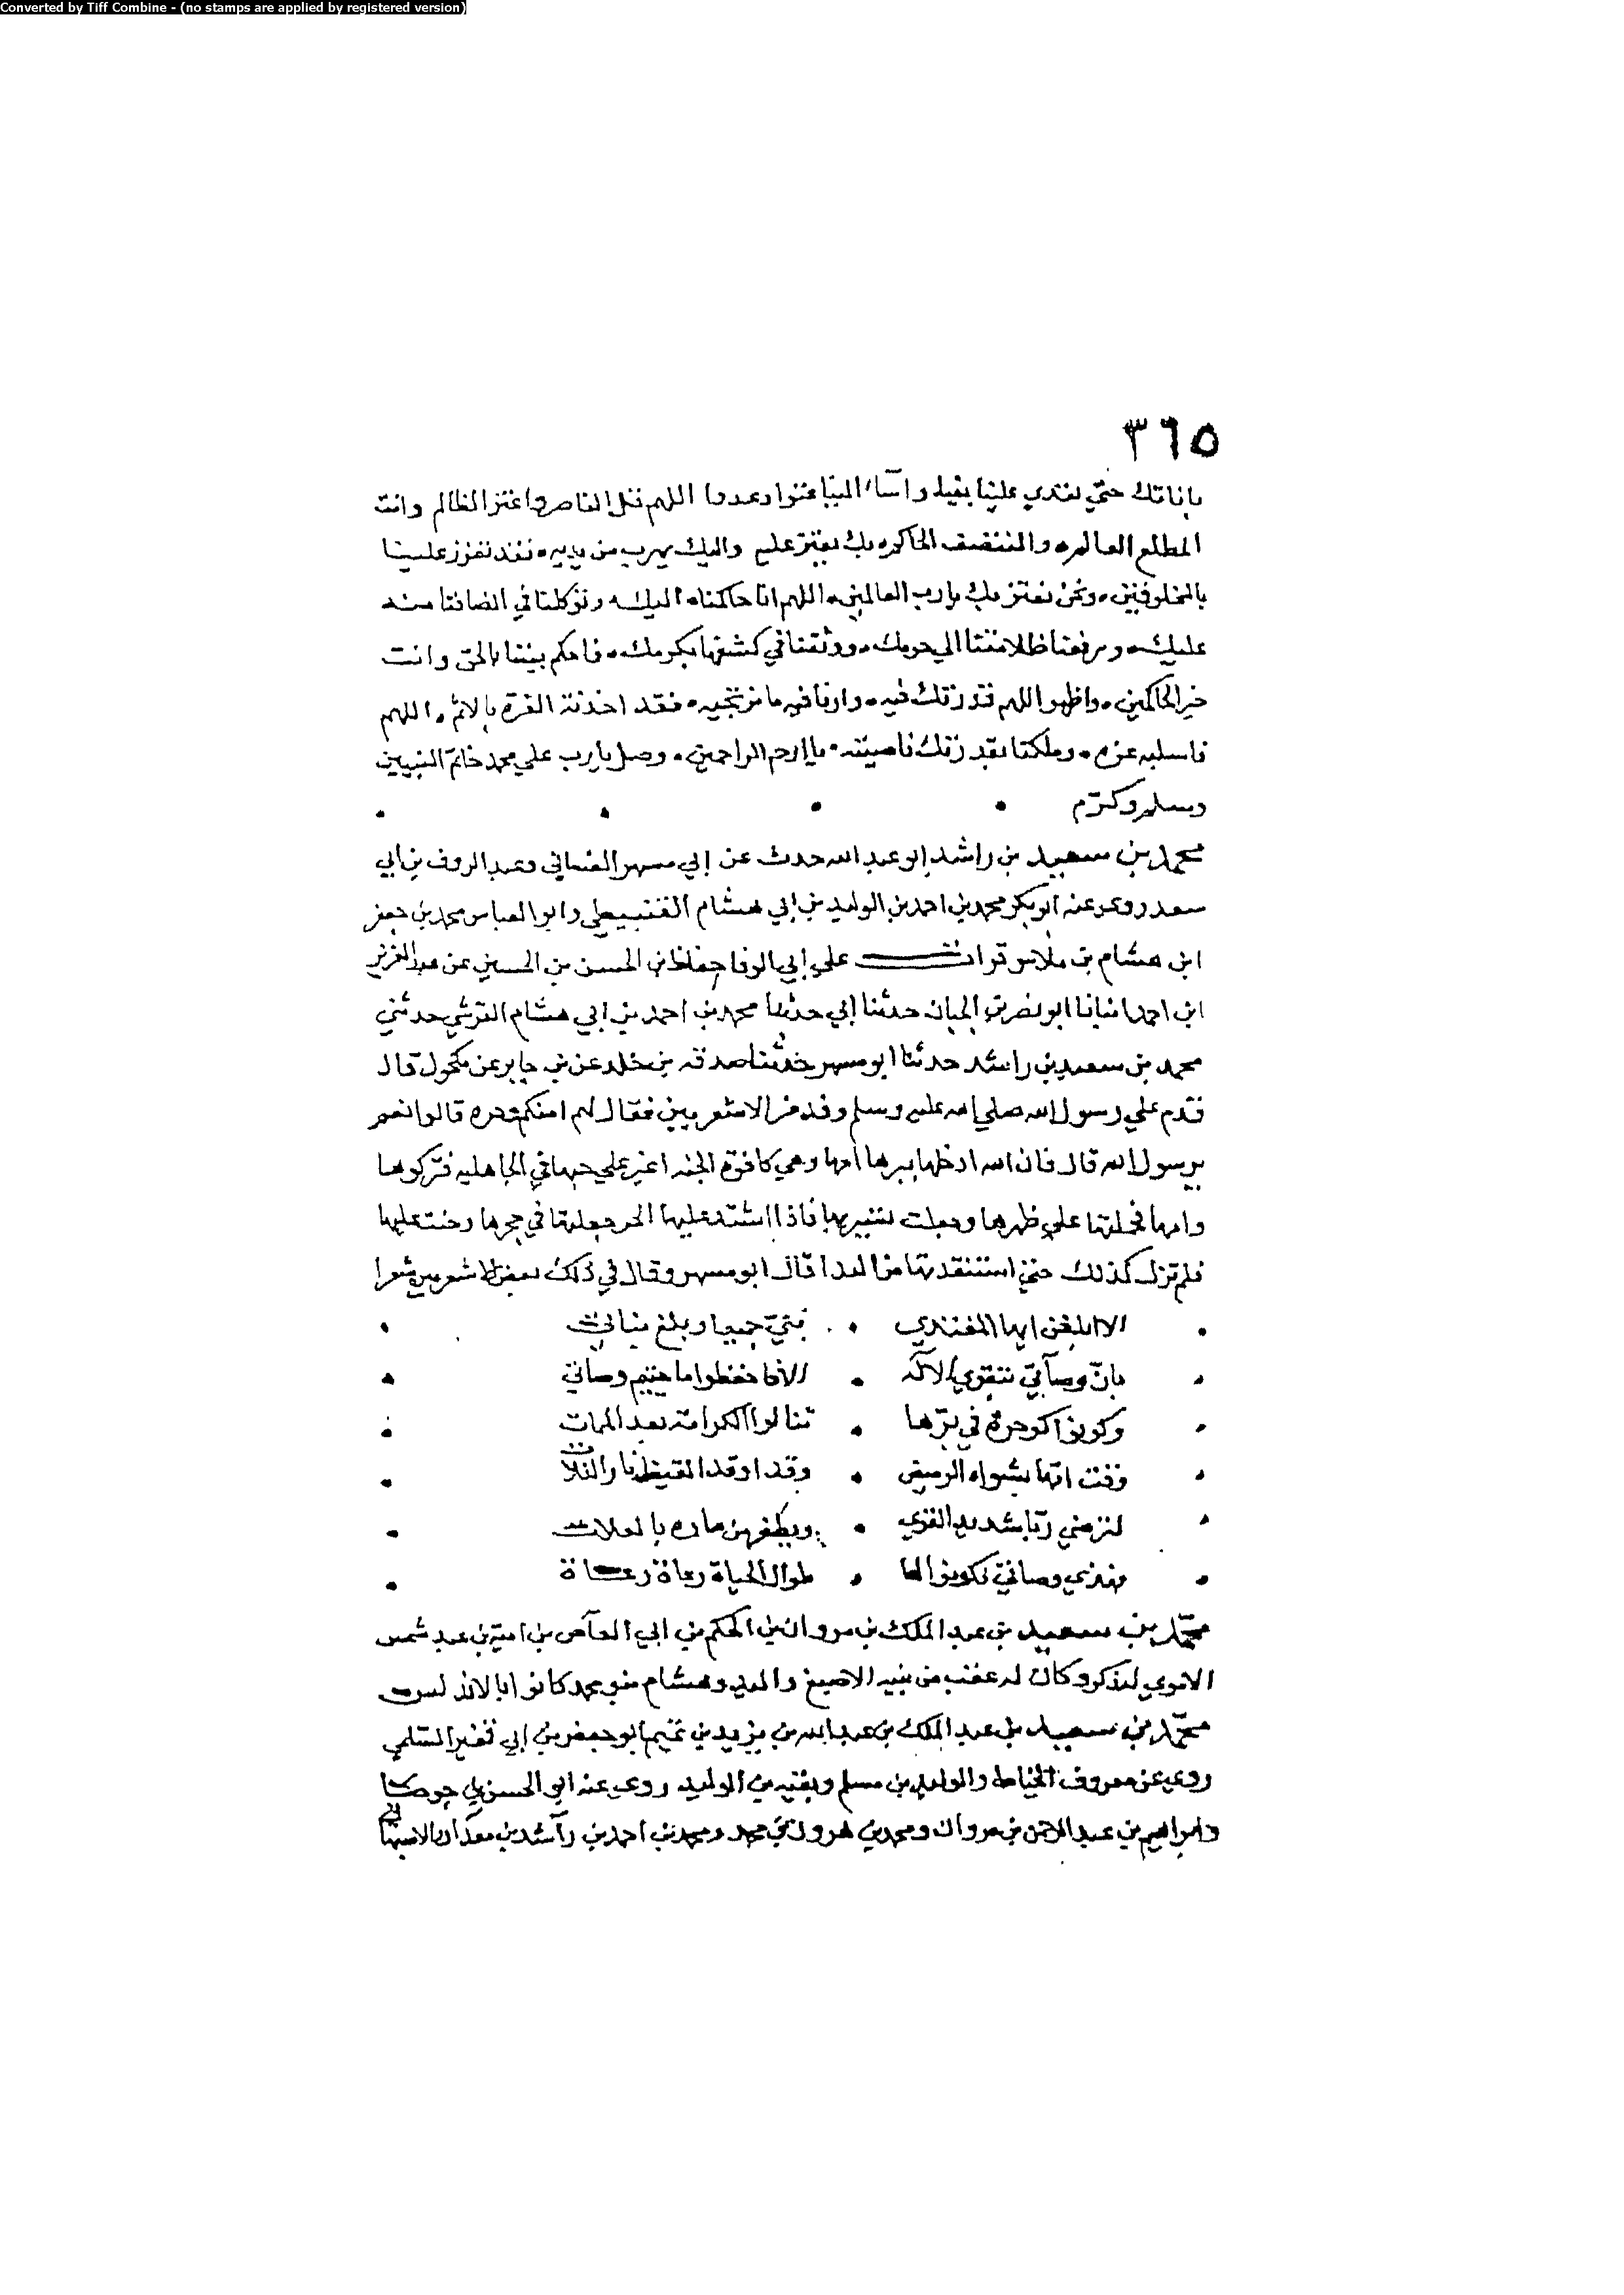 Converted by Tiff Combine - (no stamps are applied by registered version)
٣٦٥
باناتك حتي تعتدي علينا بغيا واسآء الينا عتوا وعدوا اللهم قل الناصر واعتز الظالم وانت
المطلع العالم والمنتصف الحاكم بك نعتز عليه واليك نهرب من يديه فقد تعزز علينا
بالمخلوقين ونحن نعتز بك يا رب العالمين اللهم انا حاكمناه اليك وتوكلنا في انصافنا منه
عليك ورفعنا ظلامتنا الي حرمك ووثقنا في كشفها بكرمك فاحكم بيننا بالحق وانت
خير الحاكمين واظهر اللهم قدرتك فيه وارنا فيه ما نرتجيه فقد اخذته العزة بالاثم اللهم
فاسلبه عزه وملكنا بقدرتك ناصيته يا ارحم الراحمين وصل يا رب علي محمد خاتم النبيين
وسلم وكرّم
محمد بن سعيد بن راشد ابو عبد الله حدث عن ابي مسهر الغساني وعبد الروف بن ابي
سعد روي عنه ابو بكر محمد بن احمد بن الوليد بن ابي هشام القنبيطي وابو العباس محمد بن جعفر
ابن هشام بن ملاس قرات علي ابي الوفا حفاظ بن الحسن بن الحسين عن عبد العزيز
ابن احمد انبانا ابو نصر بن الجبان حدثنا ابي حدثنا محمد بن احمد بن ابي هشام القرشي حدثني
محمد بن سعيد بن راشد حدثنا ابو مسهر حدثنا صدقه بن خلد عن بن جابر عن مكحول قال
قدم علي رسول الله صلي الله عليه وسلم وفد من الاشعريين فقال لهم امنكم وحره قالوا نعم
يرسول الله قال فان الله ادخلها ببرها امها وهي كافره الجنه اغير علي حيها في الجاهليه فتركوها
وامها فحملتها علي ظهرها وجعلت تسير بها فاذا اشتد عليها الحر جعلتها في حجرها وحنت عليها
فلم تزل كذلك حتي استنقدتها من العدا قال ابو مسهر وقال في ذلك بعض الاشعريين شعرا
الا ابلغن ايها المغتدي . بنيّ جميعا وبلغ بناتي
بانّ وصآتي بتقوي الاله . الا فاحفظوا ما حييتم وصاتي
وكونوا كوحرة في برّها . تنالوا الكرامة بعد الممات
وقت امها بشواه الرميض . وقد اوقد القيظ نار الفلات
لترضي ربّا شديد القوي . ويظفر من ناره بالعلات
فهذي وصاتي فكونوا لها . طوال الحياة رعاة رعاة
محمّد بن سعيد بن عبد الملك بن مروان بن الحكم بن ابي العآص بن امية بن عبد شمس
الاموي له ذكر وكان له عقب من بنيه الاصبغ والوليد وهشام بنو محمد كانوا بالاندلس
محمّد بن سعيد بن عبد الملك بن عبد الله بن يزيد بن تميم ابو جعفر بن ابي قفيز السّلمي
روي عن معروف الخياط والوليد بن مسلم وبقيه بن الوليد روي عنه ابو الحسن بن جوصا
وابراهيم بن عبد الرحمن بن مروان ومحمد بن هرون بن محمد ومحمد بن احمد بن رآشد بن معدان الاصبهاني